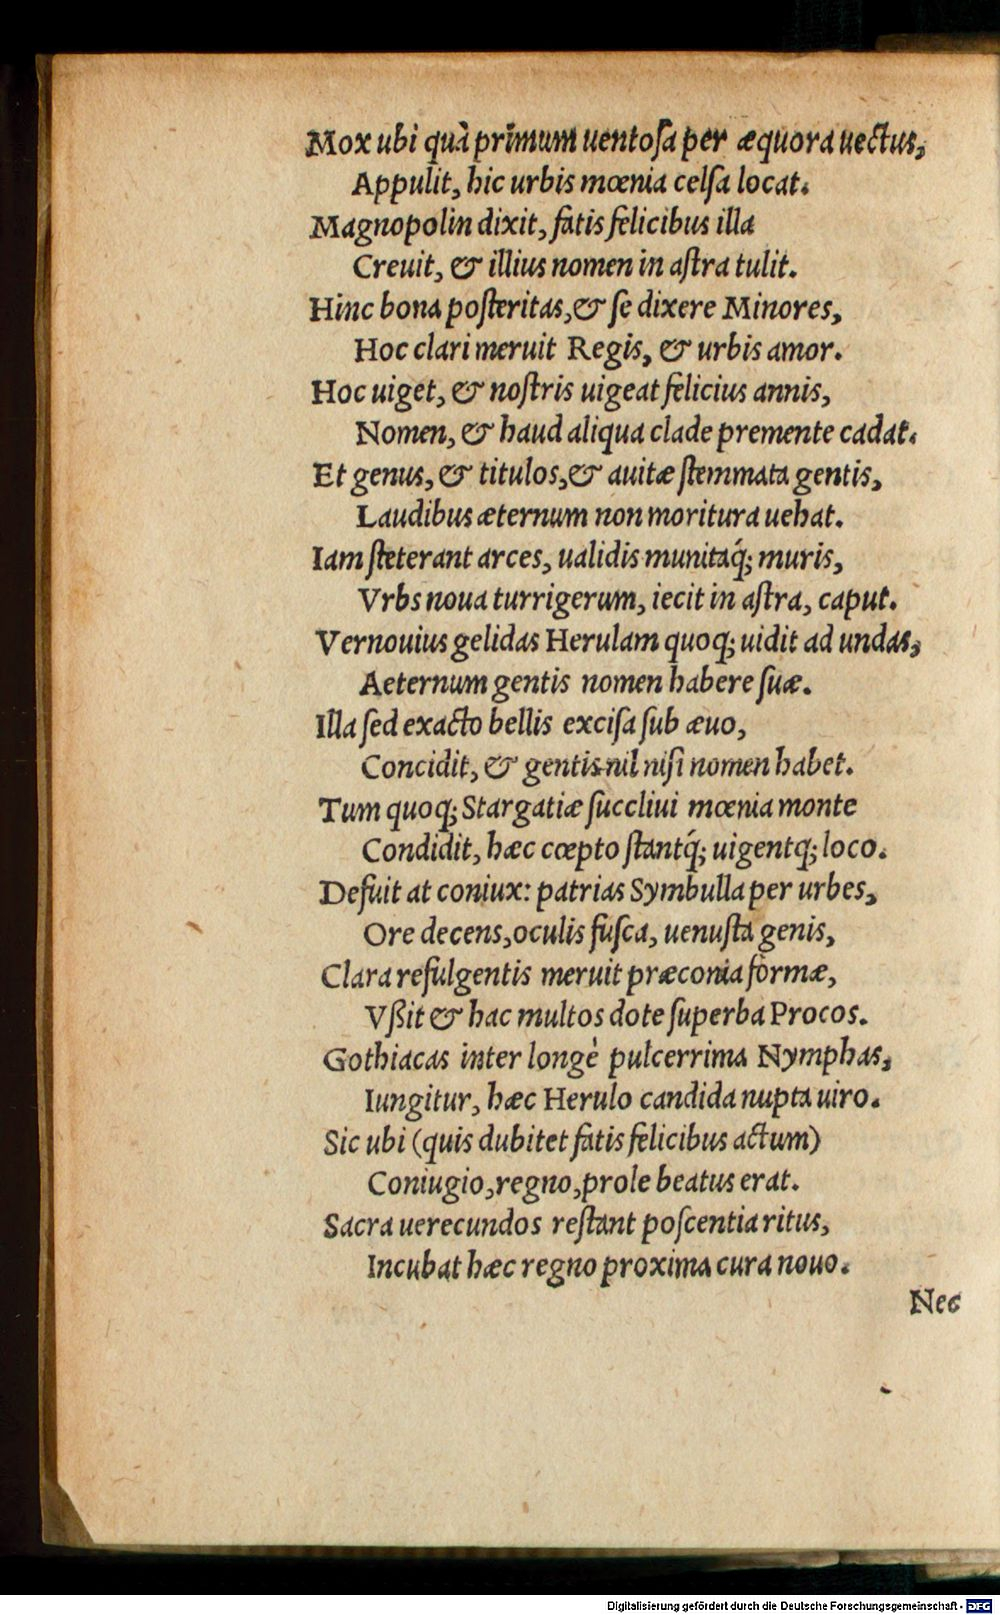 Mox ubi quã prĩmum uentoſa per æquora uectus,
Appulit, hic urbis mœnia celſa locat.
Magnopolin dixit, fatis felicibus illa
Creuit, & illius nomen in aſtra tulit.
Hinc bona poſteritas, & ſe dixere Minores,
Hoc clari meruit Regis, & urbis amor.
Hoc uiget, & noſtris uigeat felicius annis,
Nomen, & haud aliqua clade premente cadat.
Et genus, & titulos, & auitæ ſtemmata gentis,
Laudibus æternum non moritura uehat.
Iam ſteterant arces, ualidis munitaq́; muris,
Vrbs noua turrigerum, iecit in aſtra, caput.
Vernouius gelidas Herulam quoq; uidit ad undas,
Aeternum gentis nomen habere ſuæ.
Illa ſed exacto bellis exciſa ſub æuo,
Concidit, & gentis nil niſi nomen habet.
Tum quoq; Stargatiæ ſuccliui mœnia monte
Condidit, hæc cœpto ſtantq́; uigentq; loco.
Defuit at coniux: patrias Symbulla per urbes,
Ore decens, oculis fuſca, uenuſta genis,
Clara refulgentis meruit præconia formæ,
Vßit & hac multos dote ſuperba Procos.
Gothiacas inter longè pulcerrima Nymphas,
Iungitur, hæc Herulo candida nupta uiro.
Sic ubi (quis dubitet fatis felicibus actum)
Coniugio, regno, prole beatus erat.
Sacra uerecundos reſtant poſcentia ritus,
Incubat hæc regno proxima cura nouo.
Nec
Digitalisierung gefördert durch die Deutsche Forschungsgemeinschaft - DFG